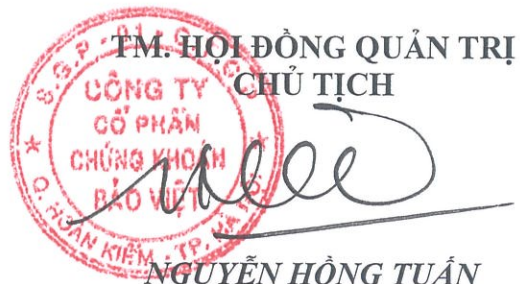 TM. HỘI ĐỒNG QUẢN TRỊ
CHỦ TỊCH
CÔNG TY
CỔ PHẦN
CHỨNG KHOÁN
BẢO VIỆT
Q. HOÀN KIẾM - TP. HÀ NỘI
NGUYỄN HỒNG TUẤN